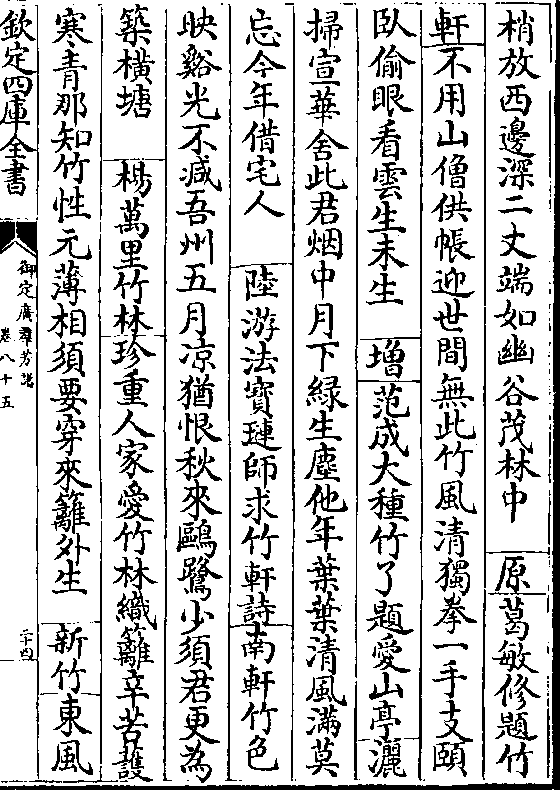 梢放西邊深二丈端如幽谷茂林中 原 葛敏修題竹
軒不用山僧供帳迎世間無此竹風清獨拳一手支頤
臥偷眼看雲生未生 增 范成大種竹了題愛山亭灑
掃宣華舍此君烟中月下緑生塵他年葉葉清風滿莫
忘今年借宅人 陸游法寶璉師求竹軒詩南軒竹色
映谿光不减吾州五月凉猶恨秋來鷗鷺少須君更為
築横塘 楊萬里竹林珍重人家愛竹林織籬辛苦護
寒青那知竹性元薄相須要穿來籬外生 新竹東風
欽定四庫全書
御定廣羣芳譜
卷八十五
二十四